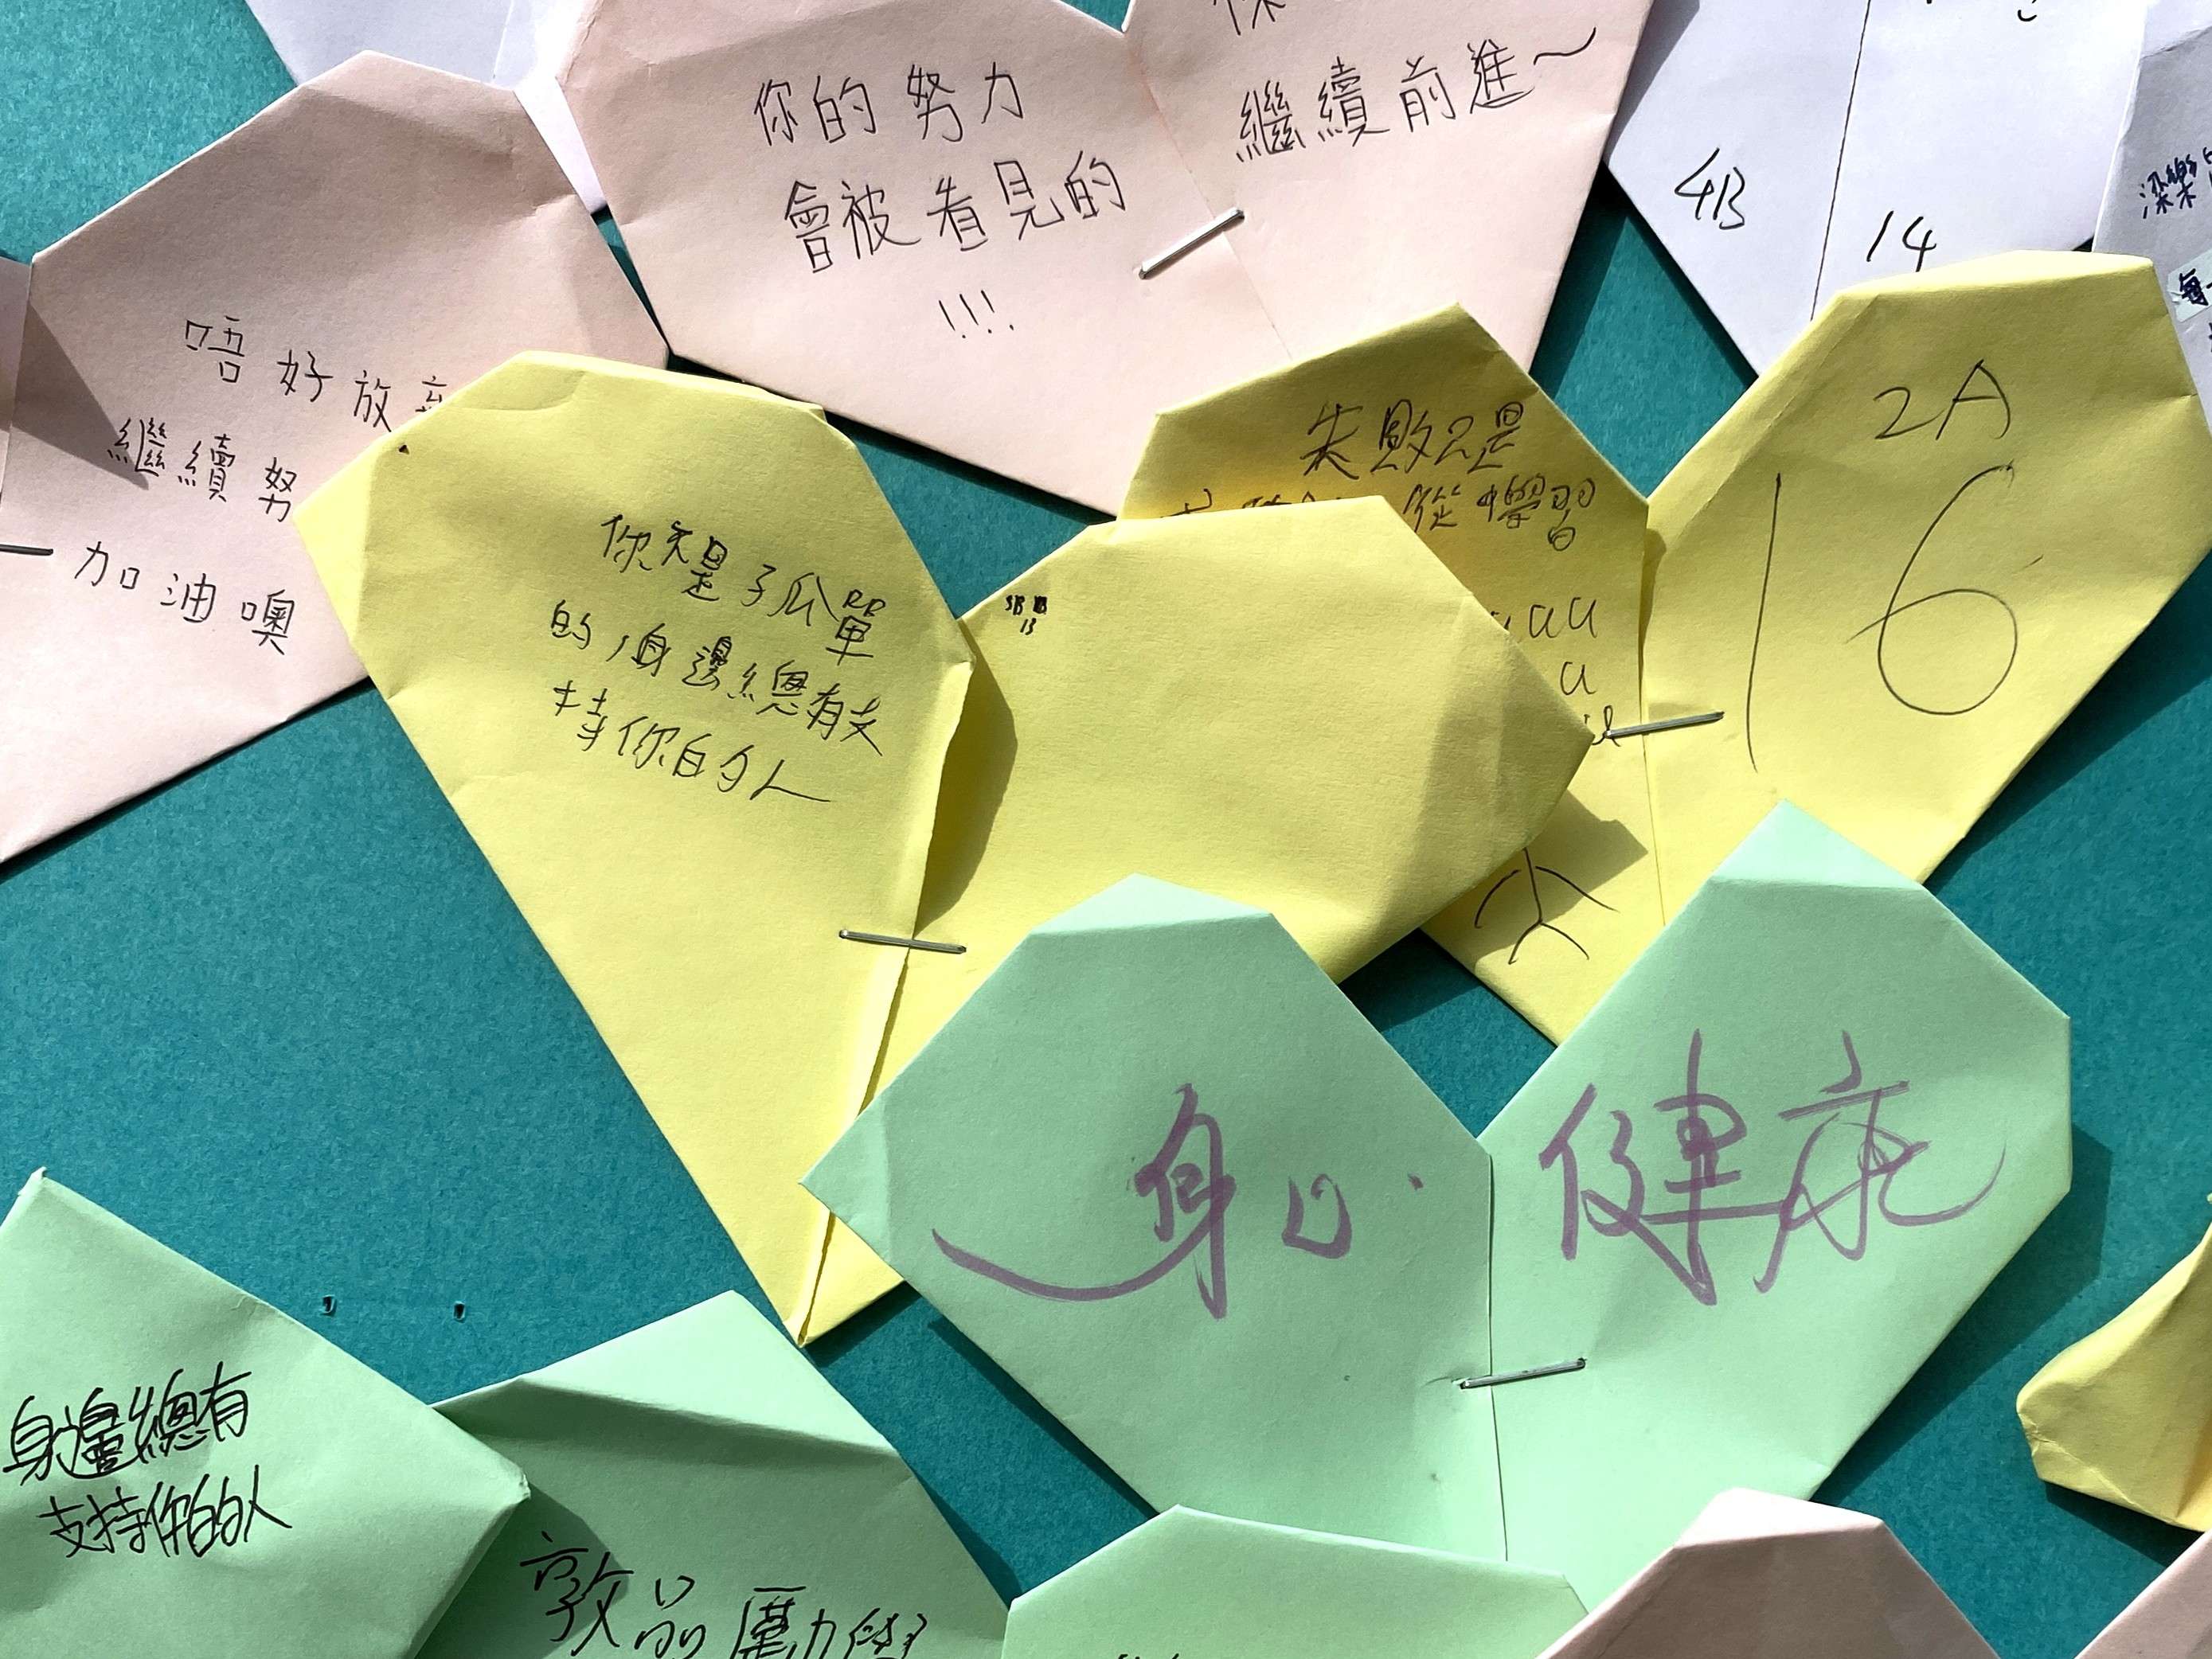 你的努力
會被看見的
!!!
繼續前進～
4B
14
唔好放
繼續努
加油噢
失敗只是
從 學習
2A
16
你不是孤單
的,身邊總有支
持你的人
13
大
身心健康
身邊總有
支持你的人
敦品勵學